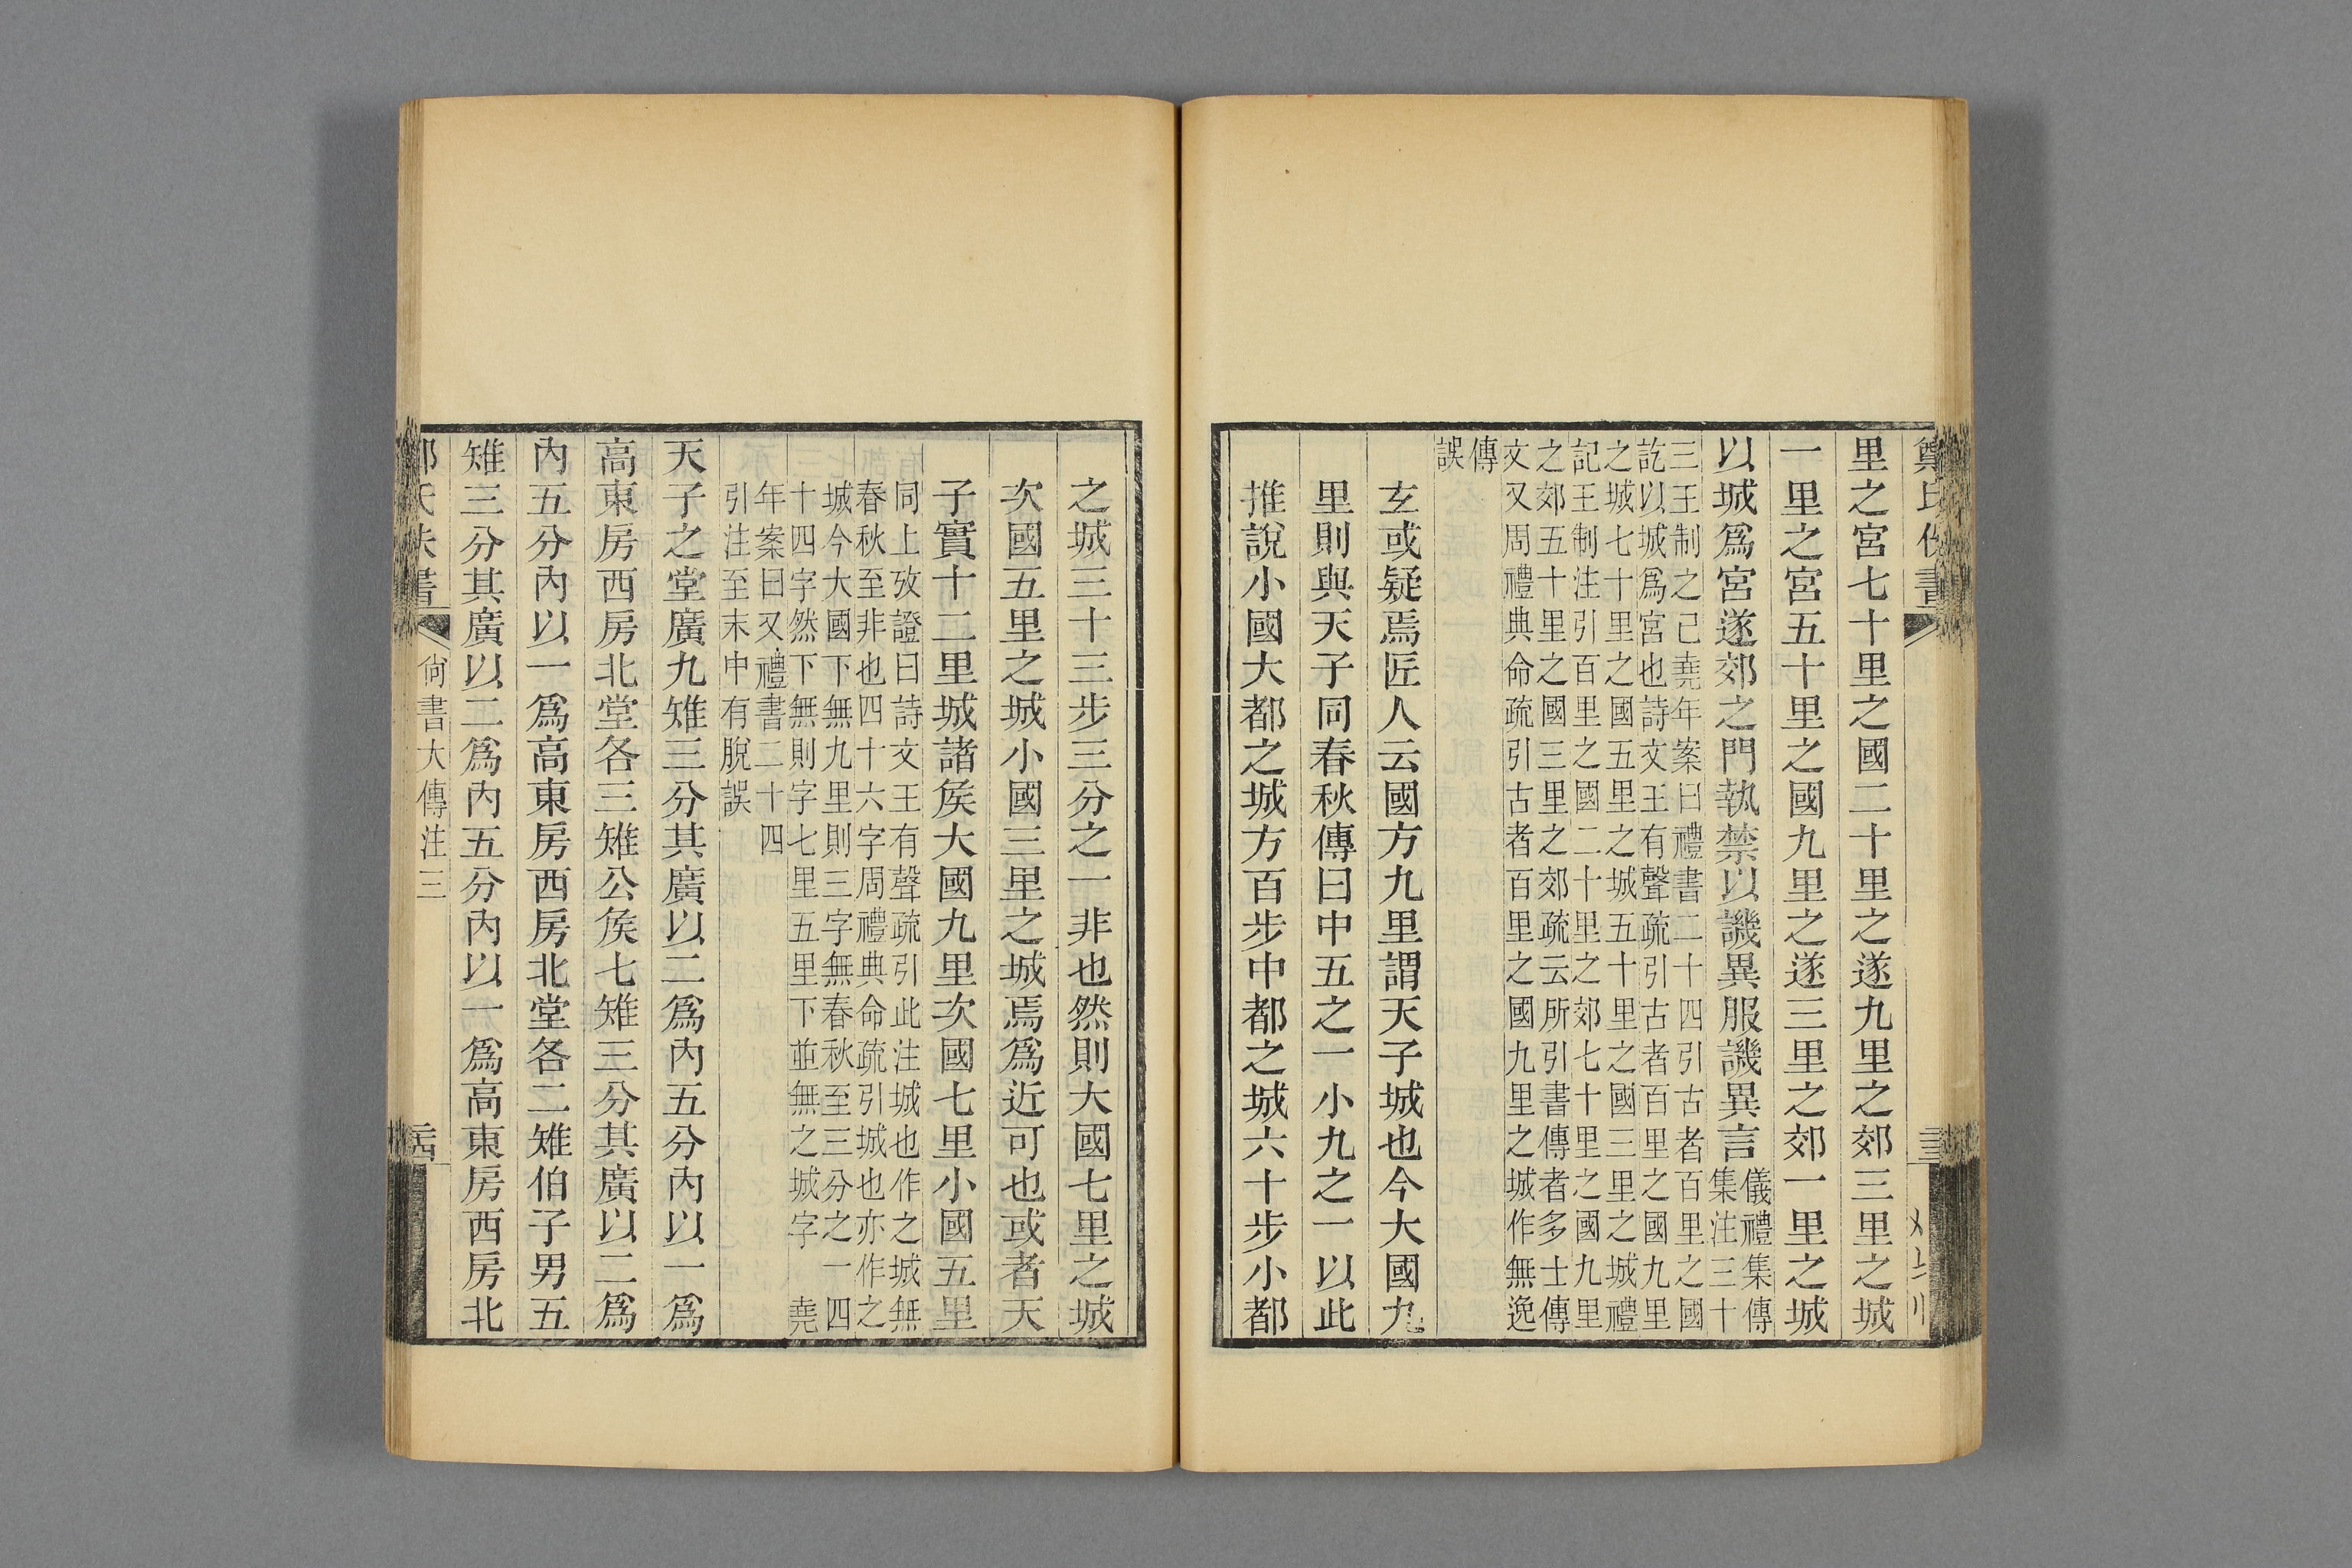 里之宮七十里之國二十里之遂九里之郊三里之城
一里之宮五十里之國九里之遂三里之郊一里之城
以城爲宮遂郊之門執禁以譏異服譏異言儀禮集傳
集注三十
三王制之己堯年案曰禮書二十四引古者百里之國
訖以城爲宮也詩文王有聲疏引古者百里之國九里
之城七十里之國五里之城五十里之國三里之城禮
記王制注引百里之國二十里之郊七十里之國九里
之郊五十里之國三里之郊疏云所引書傳者多士傳
文又周禮典命疏引古者百里之國九里之城作無逸
傳
誤
玄或疑焉匠人云國方九里謂天子城也今大國九
里則與天子同春秋傳曰中五之一小九之一以此
推說小國大都之城方百步中都之城六十步小都
之城三十三步三分之一非也然則大國七里之城
次國五里之城小國三里之城焉爲近可也或者天
子實十二里城諸矦大國九里次國七里小國五里
同上攷證曰詩文王有聲疏引此注城也作之城無
春秋至非也四十六字周禮典命疏引城也亦作之
城今大國下無九里則三字無春秋至三分之一四
十四字然下無則字七里五里下並無之城字 堯
年案曰又禮書二十四
引注至末中有脫誤
天子之堂廣九雉三分其廣以二爲內五分內以一爲
高東房西房北堂各三雉公矦七雉三分其廣以二爲
內五分內以一爲高東房西房北堂各二雉伯子男五
雉三分其廣以二爲內五分內以一爲高東房西房北
尙書大傳注三